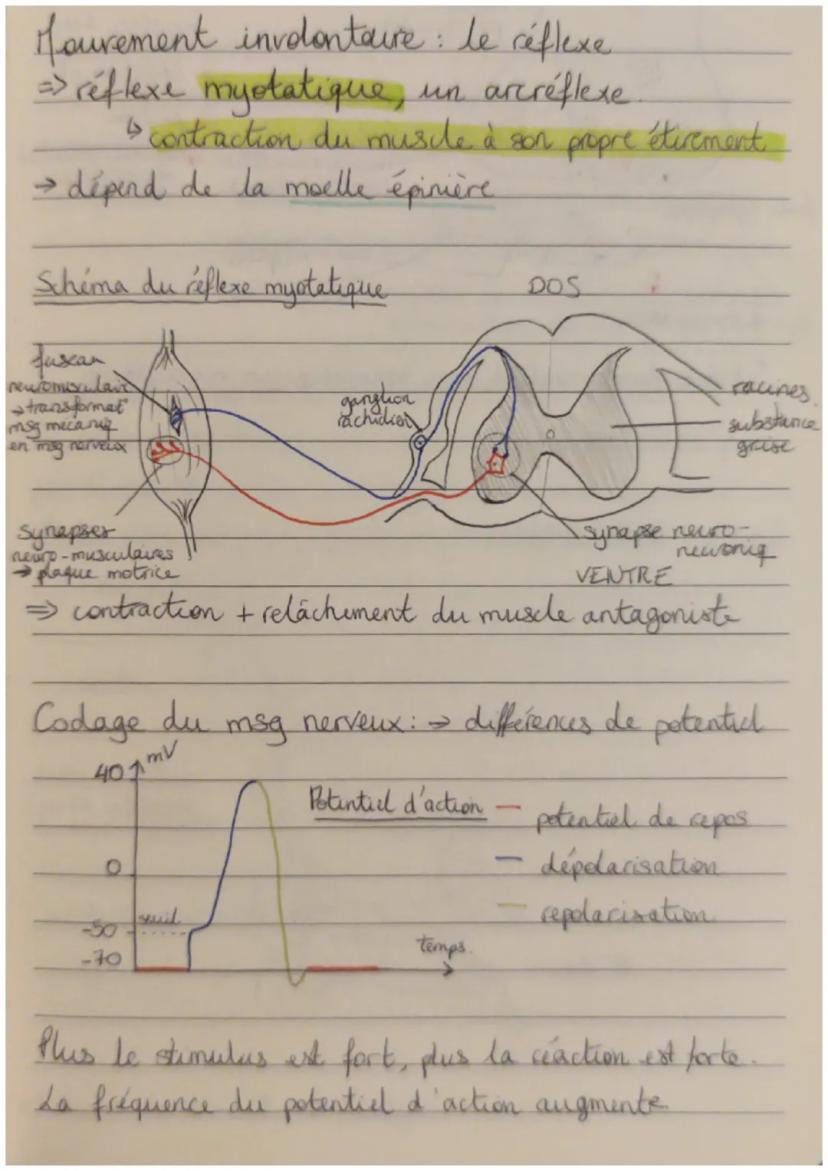 Mouvement involontaire : le réflexe
=> réflexe myotatique, un arcréflexe.
↳ contraction du muscle à son propre étirement
→ dépend de la moelle épinière
Schéma du réflexe myotatique
DOS
fuseau
neuromusculair
→ transformat°
msg mécaniq
en msg nerveux
ganglion
rachidien
racines
substance
grise
synapses
neuro-musculaires
→ plaque motrice
synapse neuro-
neuroniq
VENTRE
=> contraction + relâchement du muscle antagoniste
Codage du msg nerveux : → différences de potentiel
40 mV
Potentiel d'action
potentiel de repos
0
dépolarisation
repolarisation
seuil
-50
temps.
-70
Plus le stimulus est fort, plus la réaction est forte.
La fréquence du potentiel d'action augmente